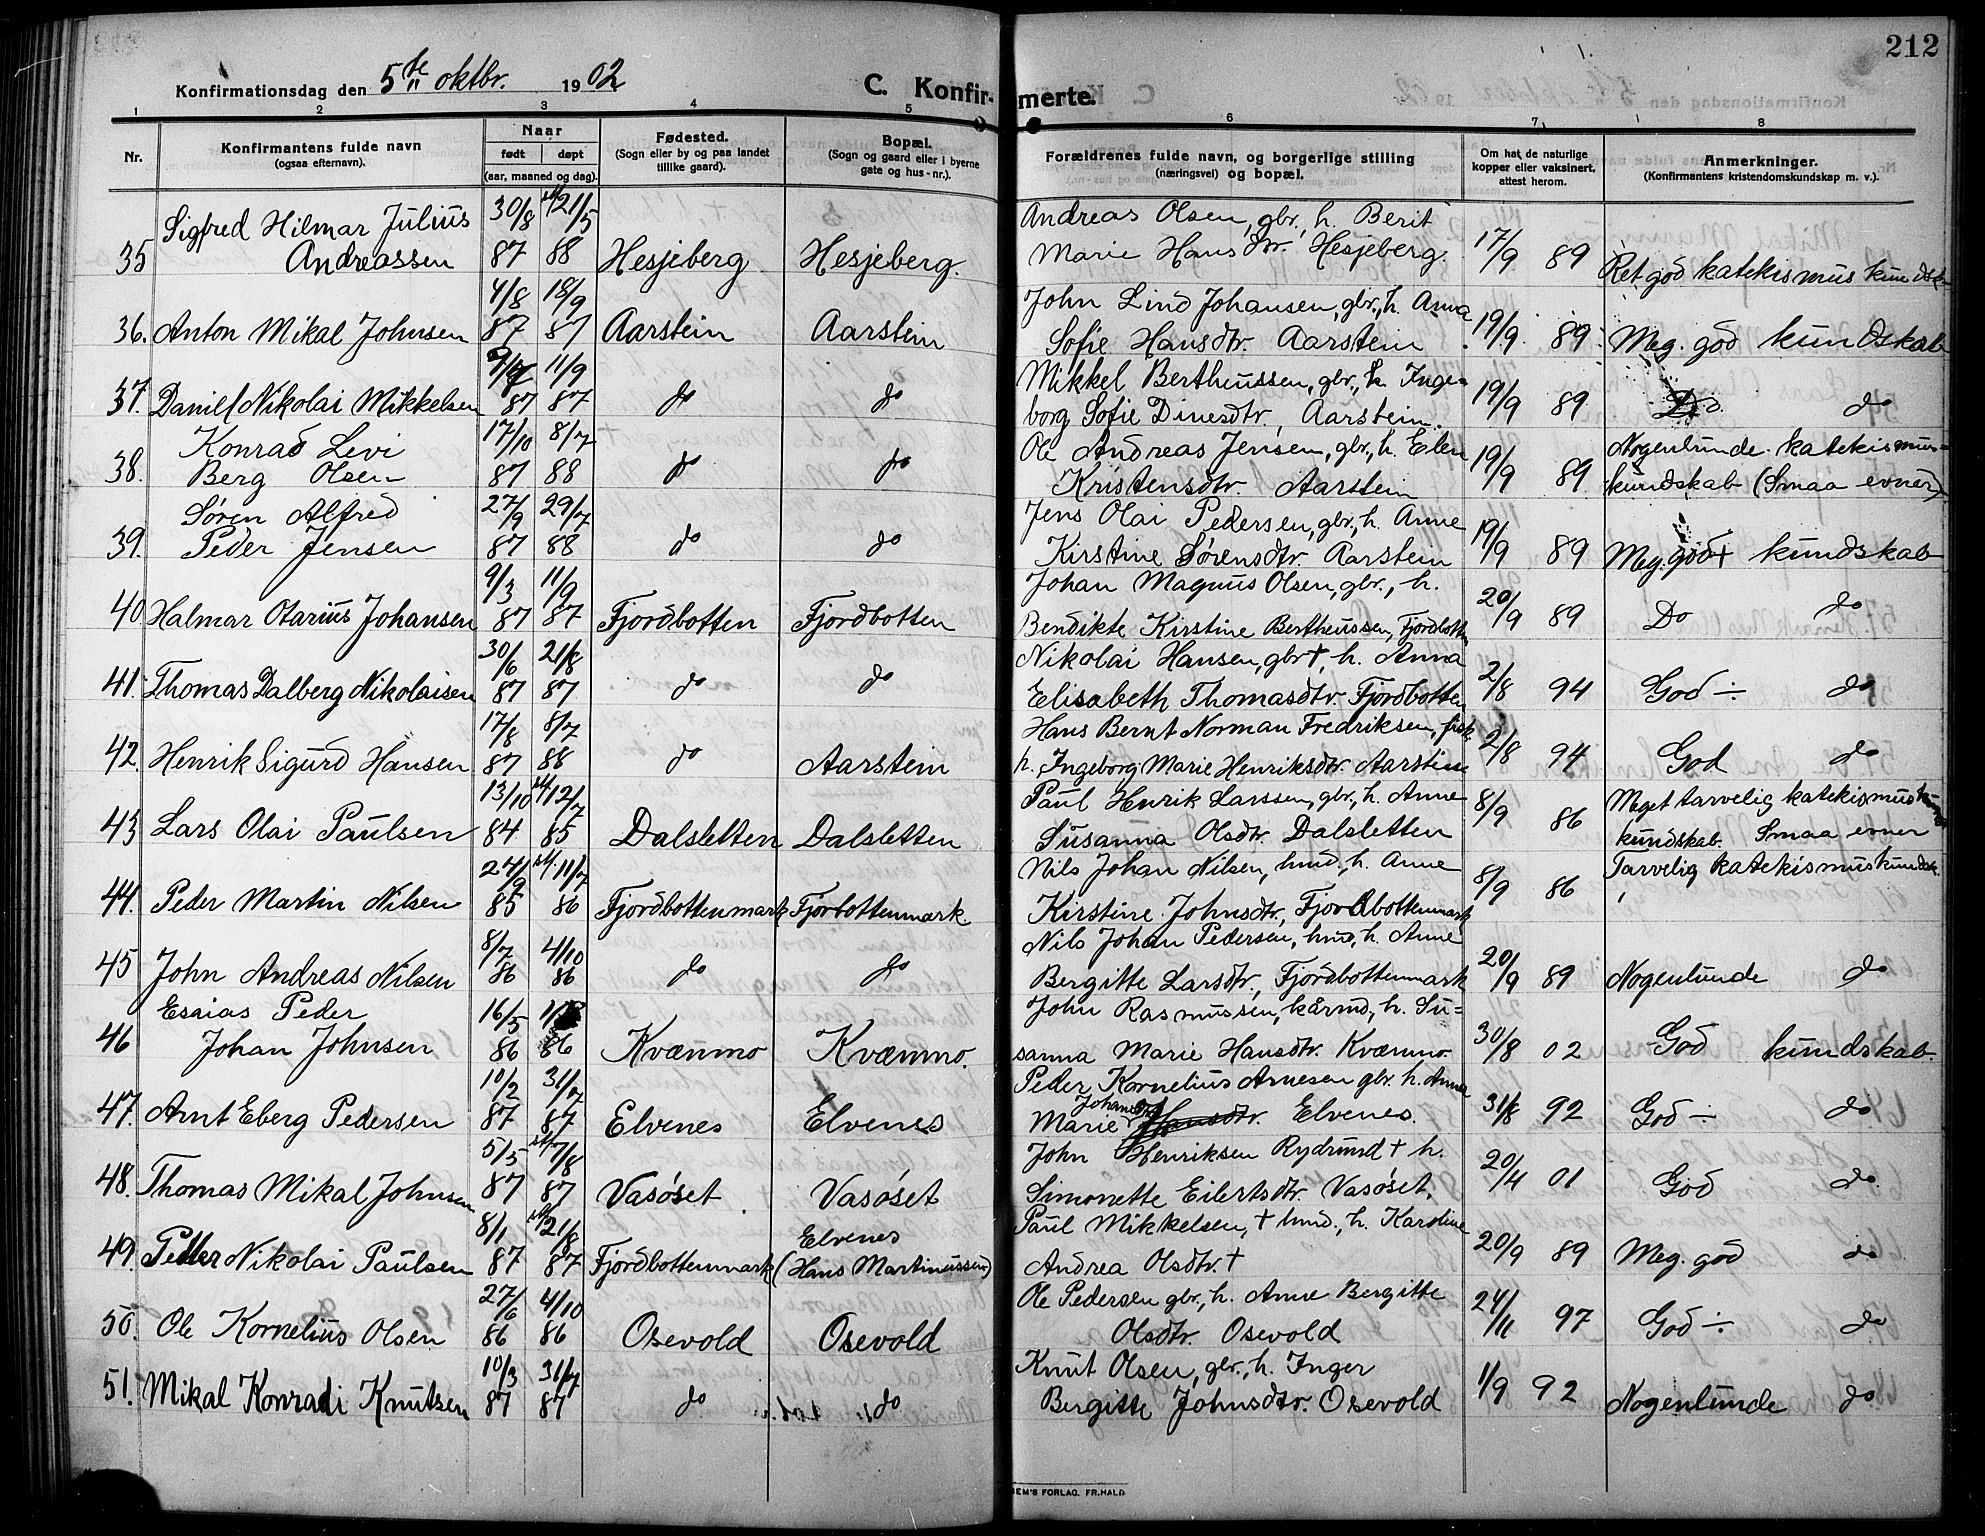 212
Konfirmationsdag den 5te oktbr. 1902 C. Konfir- merte.
1 2 3 4 5 6 7 8
Nr. Konfirmantens fulde navn (ogsaa efternavn). Naar født døpt (aar, maaned og dag). Fødested. (Sogn eller by og paa landet tillike gaard). Bopæl. (Sogn og gaard eller i byerne gate og hus-nr.). Forældrenes fulde navn, og borgerlige stilling (næringsvei) og bopæl. Om hat de naturlige kopper eller vaksinert, attest herom. Anmerkninger. (Konfirmantens kristendomskundskap m. v.).
Sigfred Hilmar Julius 30/8 21/5 Andreas Olsen, gbr., h. Berit
35 Andreassen 87 88 Hesjeberg Hesjeberg. Marie Hansdtr. Hesjeberg. 17/9 89 Ret god katekismus kundsk.
4/8 18/9 John Lind Johansen, gbr., h. Anna
36. Anton Mikal Johnsen 87 87 Aarstein Aarstein Sofie Hansdtr. Aarstein 19/9 89 Meg. god kundskab
11/9 Mikkel Bertheussen, gbr., h. Inge-
37. Daniel Nikolai Mikkelsen 87 87 do do borg Sofie Dinesdtr., Aarstein. 19/9 89 Do do
Konrad Levi 17/10 8/7 Ole Andreas Jensen, gbr., h. Elen Nogenlunde katekismus-
38. Berg Olsen 87 88 do do Kristensdtr. Aarstein 19/9 89 kundskab (Smaa evner)
Søren Alfred 27/9 29/7 Jens Olai Pedersen, gbr., h. Anne
39. Peder Jensen 87 88 do do Kirstine Sørensdtr. Aarstein 19/9 89 Meg. god+ kundskab
9/3 11/9 Johan Magnus Olsen, gbr., h.
40. Halmar Otarius Johansen 87 87 Fjordbotten Fjordbotten Bendikte Kirstine Bertheussen, Fjordbotten 20/9 89 Do do
30/6 21/8 Nikolai Hansen, gbr †, h. Anna
41. Thomas Dalberg Nikolaisen 87 87 do do Elisabeth Thomasdtr. Fjordbotten 2/8 94 God ÷ do
17/8 8/7 Hans Bernt Norman Fredriksen, fisk.
42. Henrik Sigurd Hansen 87 88 do Aarstein h. Ingeborg Marie Henriksdtr. Aarstein 2/8 94 God do
13/10 12/7 Paul Henrik Larssen, gbr., h. Anne Meget tarvelig katekismus
43 Lars Olai Paulsen 84 85 Dalsletten Dalsletten Susanna Olsdtr. Dalsletten 8/9 86 kundskab. Smaa evner
24/9 11/7 Nils Johan Nilsen, hmd., h. Anne Tarvelig katekismuskundsk.
44. Peder Martin Nilsen 85 86 Fjordbottenmark Fjorbottenmark. Kirstine Johnsdtr, Fjordbottenmark 8/9 86
8/7 4/10 Nils Johan Pedersen, hmd, h. Anne
45 John Andreas Nilsen 86 86 do do Bergitte Larsdtr., Fjordbottenmark 20/9 89 Nogenlunde do
Esaias Peder 16/5 John Rasmussen, kårmd, h. Su=
46 Johan Johnsen 86 86 Kvænmo Kvænmo. sanna Marie Hansdtr. Kvænmo. 30/8 02 God kundskab.
10/2 31/7 Peder Kornelius Arnesen gbr. h. Anna
47. Arnt Eberg Pedersen 87 87 Elvenes Elvenes Marie Hansdtr. Elvenes. 31/8 92 God ÷ do
5/5 7/8 John Henriksen Rydmnd † h.
48. Thomas Mikal Johnsen 87 87 Vasøset Vasøset Simonette Eilertsdtr. Vasøset. 20/4 01 God do
8/1 21/8 Elvenes Paul Mikkelsen, † hmd., h. Karoline
49. Peder Nikolai Paulsen 87 87 Fjordbottenmark (Hans Martinussen) Andrea Olsdtr. † 20/9 89 Meg. god do
27/6 4/10 Ole Pedersen gbr., h. Anne Bergitte
50. Ole Kornelius Olsen 86 86 Osevold Osevold Olsdtr. Osevold 24/11 97 God ÷ do
10/3 31/7 Knut Olsen, gbr., h. Inger
51. Mikal Konradi Knutsen 87 87 do do Bergitte Johnsdtr. Osevold 1/9 92 Nogenlunde do
SEM'S FORLAG, FR.HALD